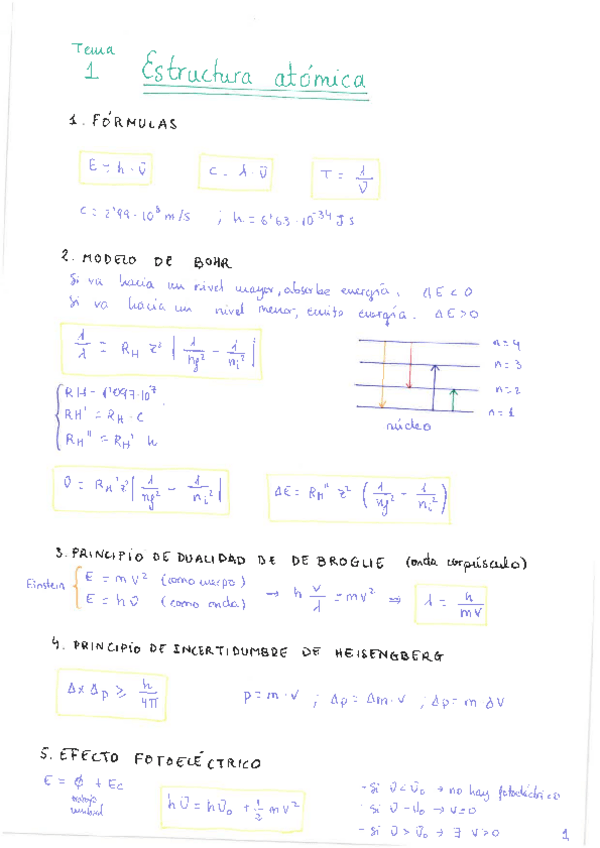 Tema
1 Estructura atómica
1. FÓRMULAS
E = h · υ   c = λ · υ   T = 1/υ
c = 2'99 · 10^8 m/s ; h = 6'63 · 10^-34 J s
2. MODELO DE BOHR
Si va hacia un nivel mayor, absorbe energía. ΔE < 0
Si va hacia un nivel menor, emite energía. ΔE > 0
1/λ = R_H z² | 1/n_f² - 1/n_i² |
n = 4
n = 3
n = 2
n = 1
núcleo
R_H = 1'097 · 10^7
R_H' = R_H · c
R_H'' = R_H' h
υ = R_H' z² | 1/n_f² - 1/n_i² |   ΔE = R_H'' z² ( 1/n_f² - 1/n_i² )
3. PRINCIPIO DE DUALIDAD DE DE BROGLIE (onda corpúsculo)
Einstein { E = m v² (como cuerpo)
E = h υ (como onda) → h v/λ = m v² ⇒ λ = h/mv
4. PRINCIPIO DE INCERTIDUMBRE DE HEISENGBERG
Δx Δp ≥ h/4π   p = m · v ; Δp = Δm · v ; Δp = m Δv
5. EFECTO FOTOELÉCTRICO
E = ϕ + Ec
trabajo
umbral
hυ = hυ₀ + 1/2 m v²
- Si υ < υ₀ → no hay fotoeléctrico
- Si υ = υ₀ → v = 0
- Si υ > υ₀ → ∃ v > 0
1